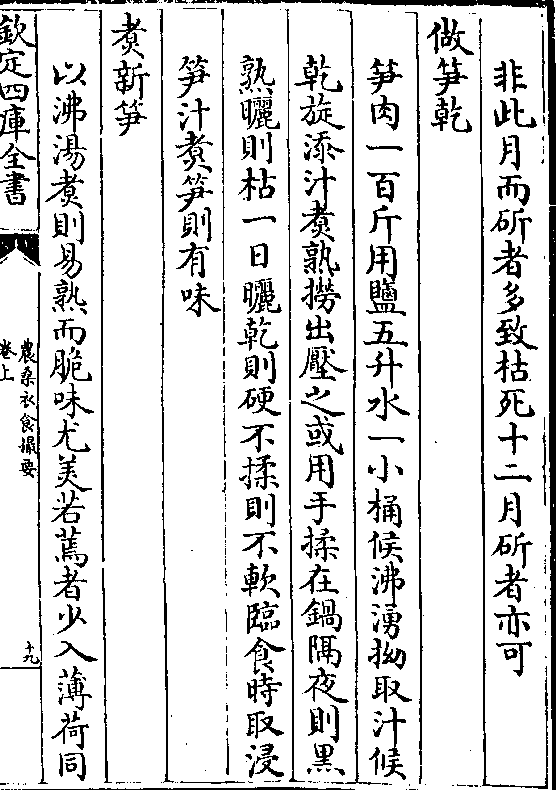 非此月而斫者多致枯死十二月斫者亦可
做笋乾
笋肉一百斤用鹽五升水一小桶候沸湧拗取汁候
乾旋添汁煑熟撈出壓之或用手揉在鍋隔夜則黑
熟曬則枯一日曬乾則硬不揉則不軟臨食時取浸
笋汁煑笋則有味
煑新笋
以沸湯煑則易熟而脆味尤美若蔫者少入薄荷同
欽定四庫全書
農桑衣食撮要
卷上
十九